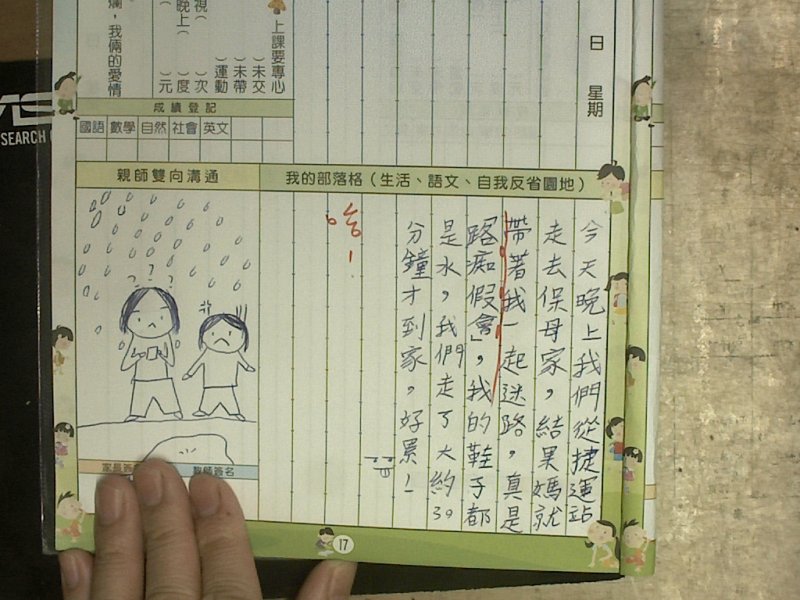 日 星期
上課要專心
( )未交
( )未帶
( )運動
( )次
( )度
( )元
視
晚上(
爛，我倆的愛情
成績登記
國語 數學 自然 社會 英文
親師雙向溝通
我的部落格(生活、語文、自我反省園地)
今天晚上我們從捷運站
走去保母家，結果媽就
帶著我一起迷路，真是
「路痴假會」，我的鞋子都
是水，我們走了大約30
分鐘才到家，好累！
哈！
???
教師簽名
17
SEARCH